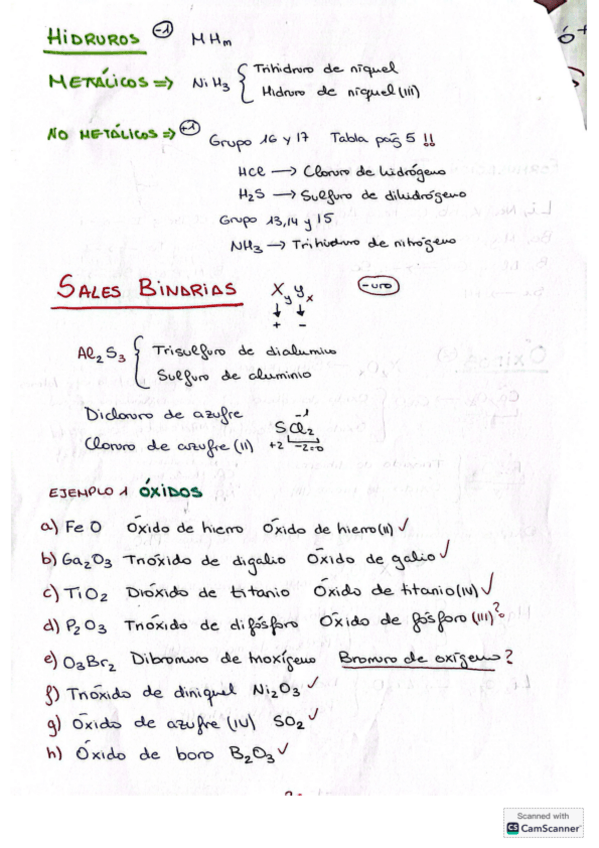 HIDRUROS -1 MHm
METÁLICOS => NiH3 { Trihidruro de níquel
Hidruro de níquel (III)
NO METÁLICOS => +1
Grupo 16 y 17 Tabla pág 5 !!
HCl → Cloruro de hidrógeno
H2S → Sulfuro de dihidrógeno
Grupo 13, 14 y 15
NH3 → Trihidruro de nitrógeno
SALES BINARIAS Xy Yx -uro
↓ ↓
+ -
Al2S3 { Trisulfuro de dialuminio
Sulfuro de aluminio
Dicloruro de azufre
-1
SCl2
Cloruro de azufre (II) +2 -2=0
EJEMPLO 1 ÓXIDOS
a) FeO Óxido de hierro Óxido de hierro (II) ✓
b) Ga2O3 Trióxido de digalio Óxido de galio ✓
c) TiO2 Dióxido de titanio Óxido de titanio (IV) ✓
d) P2O3 Trióxido de difósforo Óxido de fósforo (III)?
e) O3Br2 Dibromuro de trioxígeno Bromuro de oxígeno?
f) Trióxido de diníquel Ni2O3 ✓
g) Óxido de azufre (IV) SO2 ✓
h) Óxido de boro B2O3 ✓
Scanned with
CS CamScanner